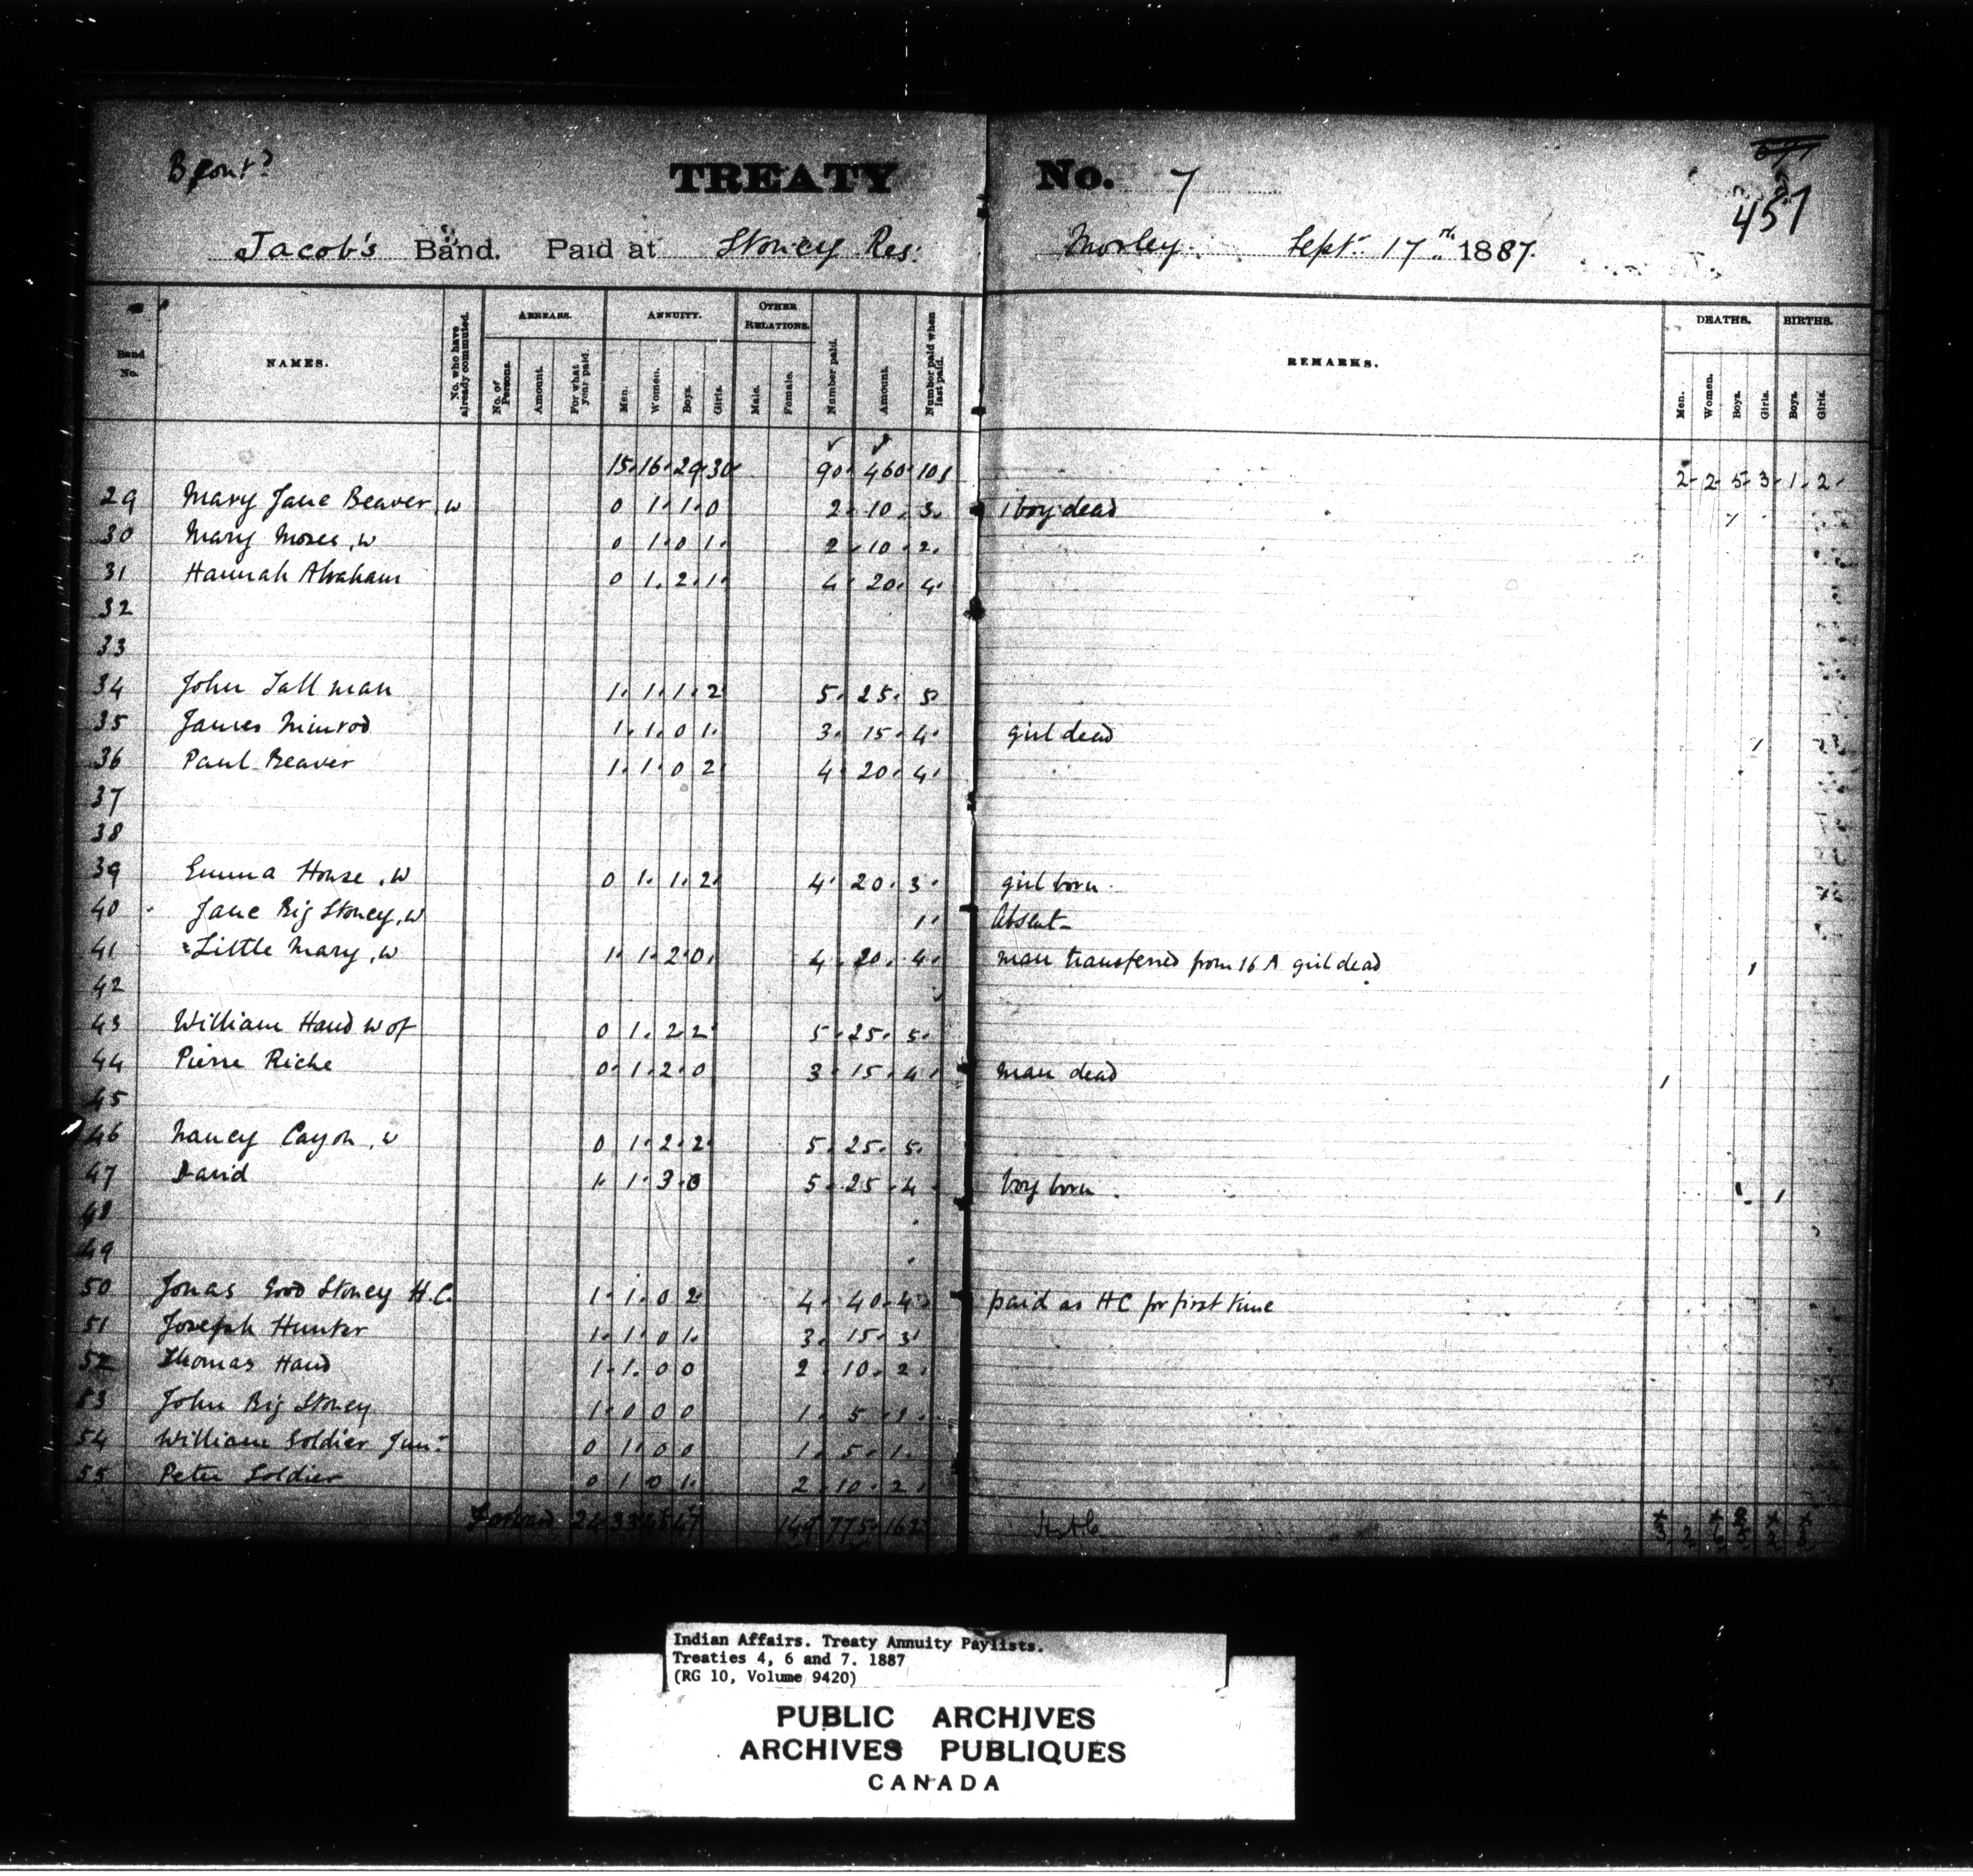 B Cont?
TREATY No. 7
457
Jacob's Band. Paid at Stoney Res: Morley Sept: 17th 1887.
Band No. NAMES. No. who have already commuted. ARREARS. No. of Persons. Amount. For what year paid. ANNUITY. Men. Women. Boys. Girls. OTHER RELATIONS. Male. Female. Number paid. Amount. Number paid when last paid. REMARKS. DEATHS. Men. Women. Boys. Girls. BIRTHS. Boys. Girls.
15 16 29 30 90 460 101 2 2 5 3 1 2
29 Mary Jane Beaver, w 0 1 1 0 2 10 3 1 boy dead 1
30 Mary Moses, w 0 1 0 1 2 10 2
31 Hannah Abraham 0 1 2 1 4 20 4
32
33
34 John Tall man 1 1 1 2 5 25 5
35 James Nimrod 1 1 0 1 3 15 4 girl dead 1
36 Paul Beaver 1 1 0 2 4 20 4
37
38
39 Emma House, w 0 1 1 2 4 20 3 girl born
40 Jane Big Stoney, w 1 Absent
41 Little Mary, w 1 1 2 0 4 20 4 man transferred from 16 A girl dead 1
42
43 William Hand w of 0 1 2 2 5 25 5
44 Pierre Riche 0 1 2 0 3 15 4 man dead 1
45
46 Nancy Cayon, w 0 1 2 2 5 25 5
47 David 1 1 3 0 5 25 4 boy born 1
48
49
50 Jonas Good Stoney H.C. 1 1 0 2 4 40 4 paid as HC for first time
51 Joseph Hunter 1 1 0 1 3 15 3
52 Thomas Hand 1 1 0 0 2 10 2
53 John Big Stoney 1 0 0 0 1 5 1
54 William Soldier Jun: 0 1 0 0 1 5 1
55 Peter Soldier 0 1 0 1 2 10 2
Forward 24 33 45 47 149 775 162
Indian Affairs. Treaty Annuity Paylists.
Treaties 4, 6 and 7. 1887
(RG 10, Volume 9420)
PUBLIC ARCHIVES
ARCHIVES PUBLIQUES
CANADA